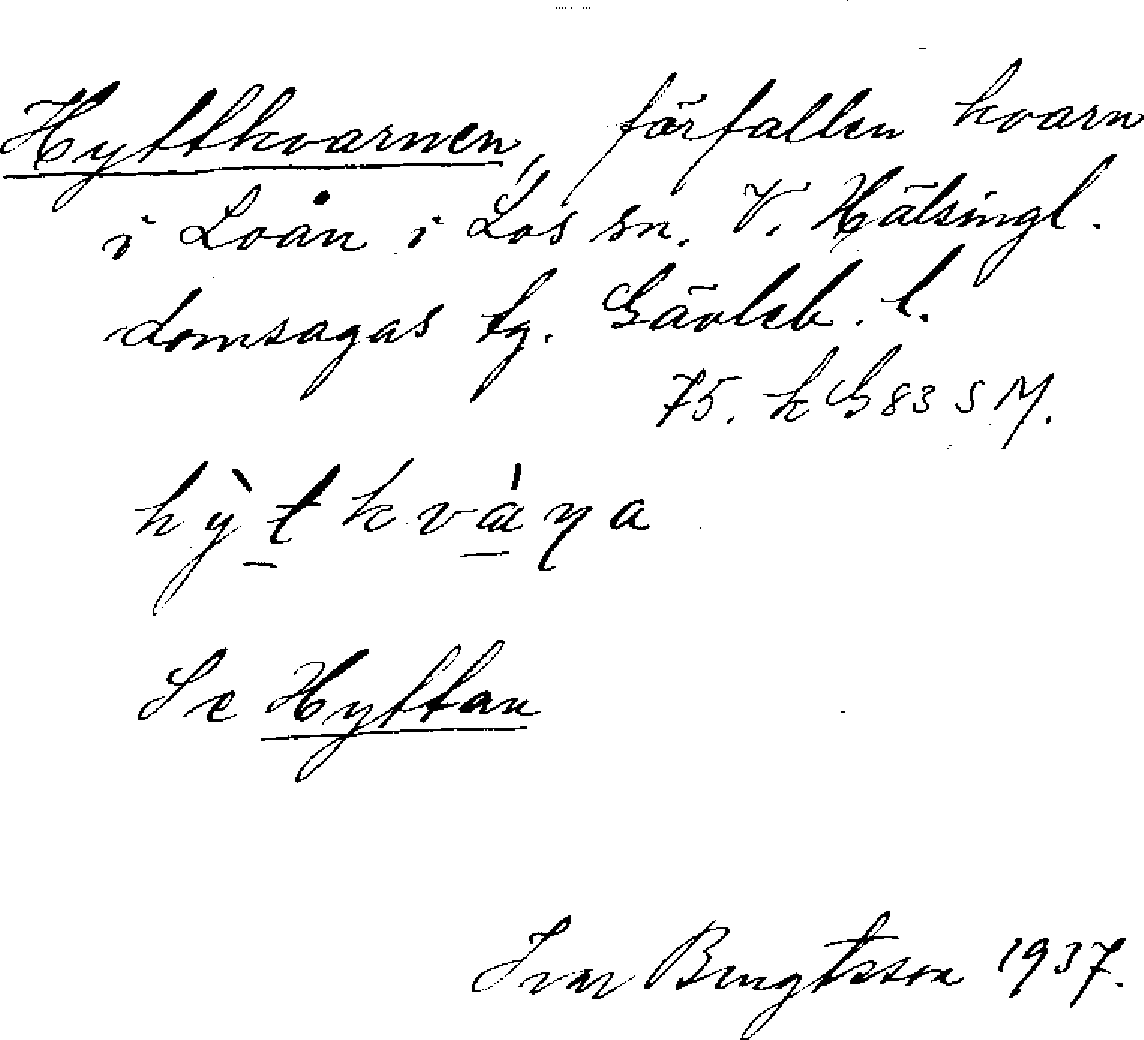 Hyttkvarnen, förfallen kvarn
i Loån i Los sn. V. Hälsingl.
domsagas tg. Gävleb. l.
75. k G 83 S M.
hỳt kvàŋa
Se Hyttan
Ivar Bengtsson 1937.